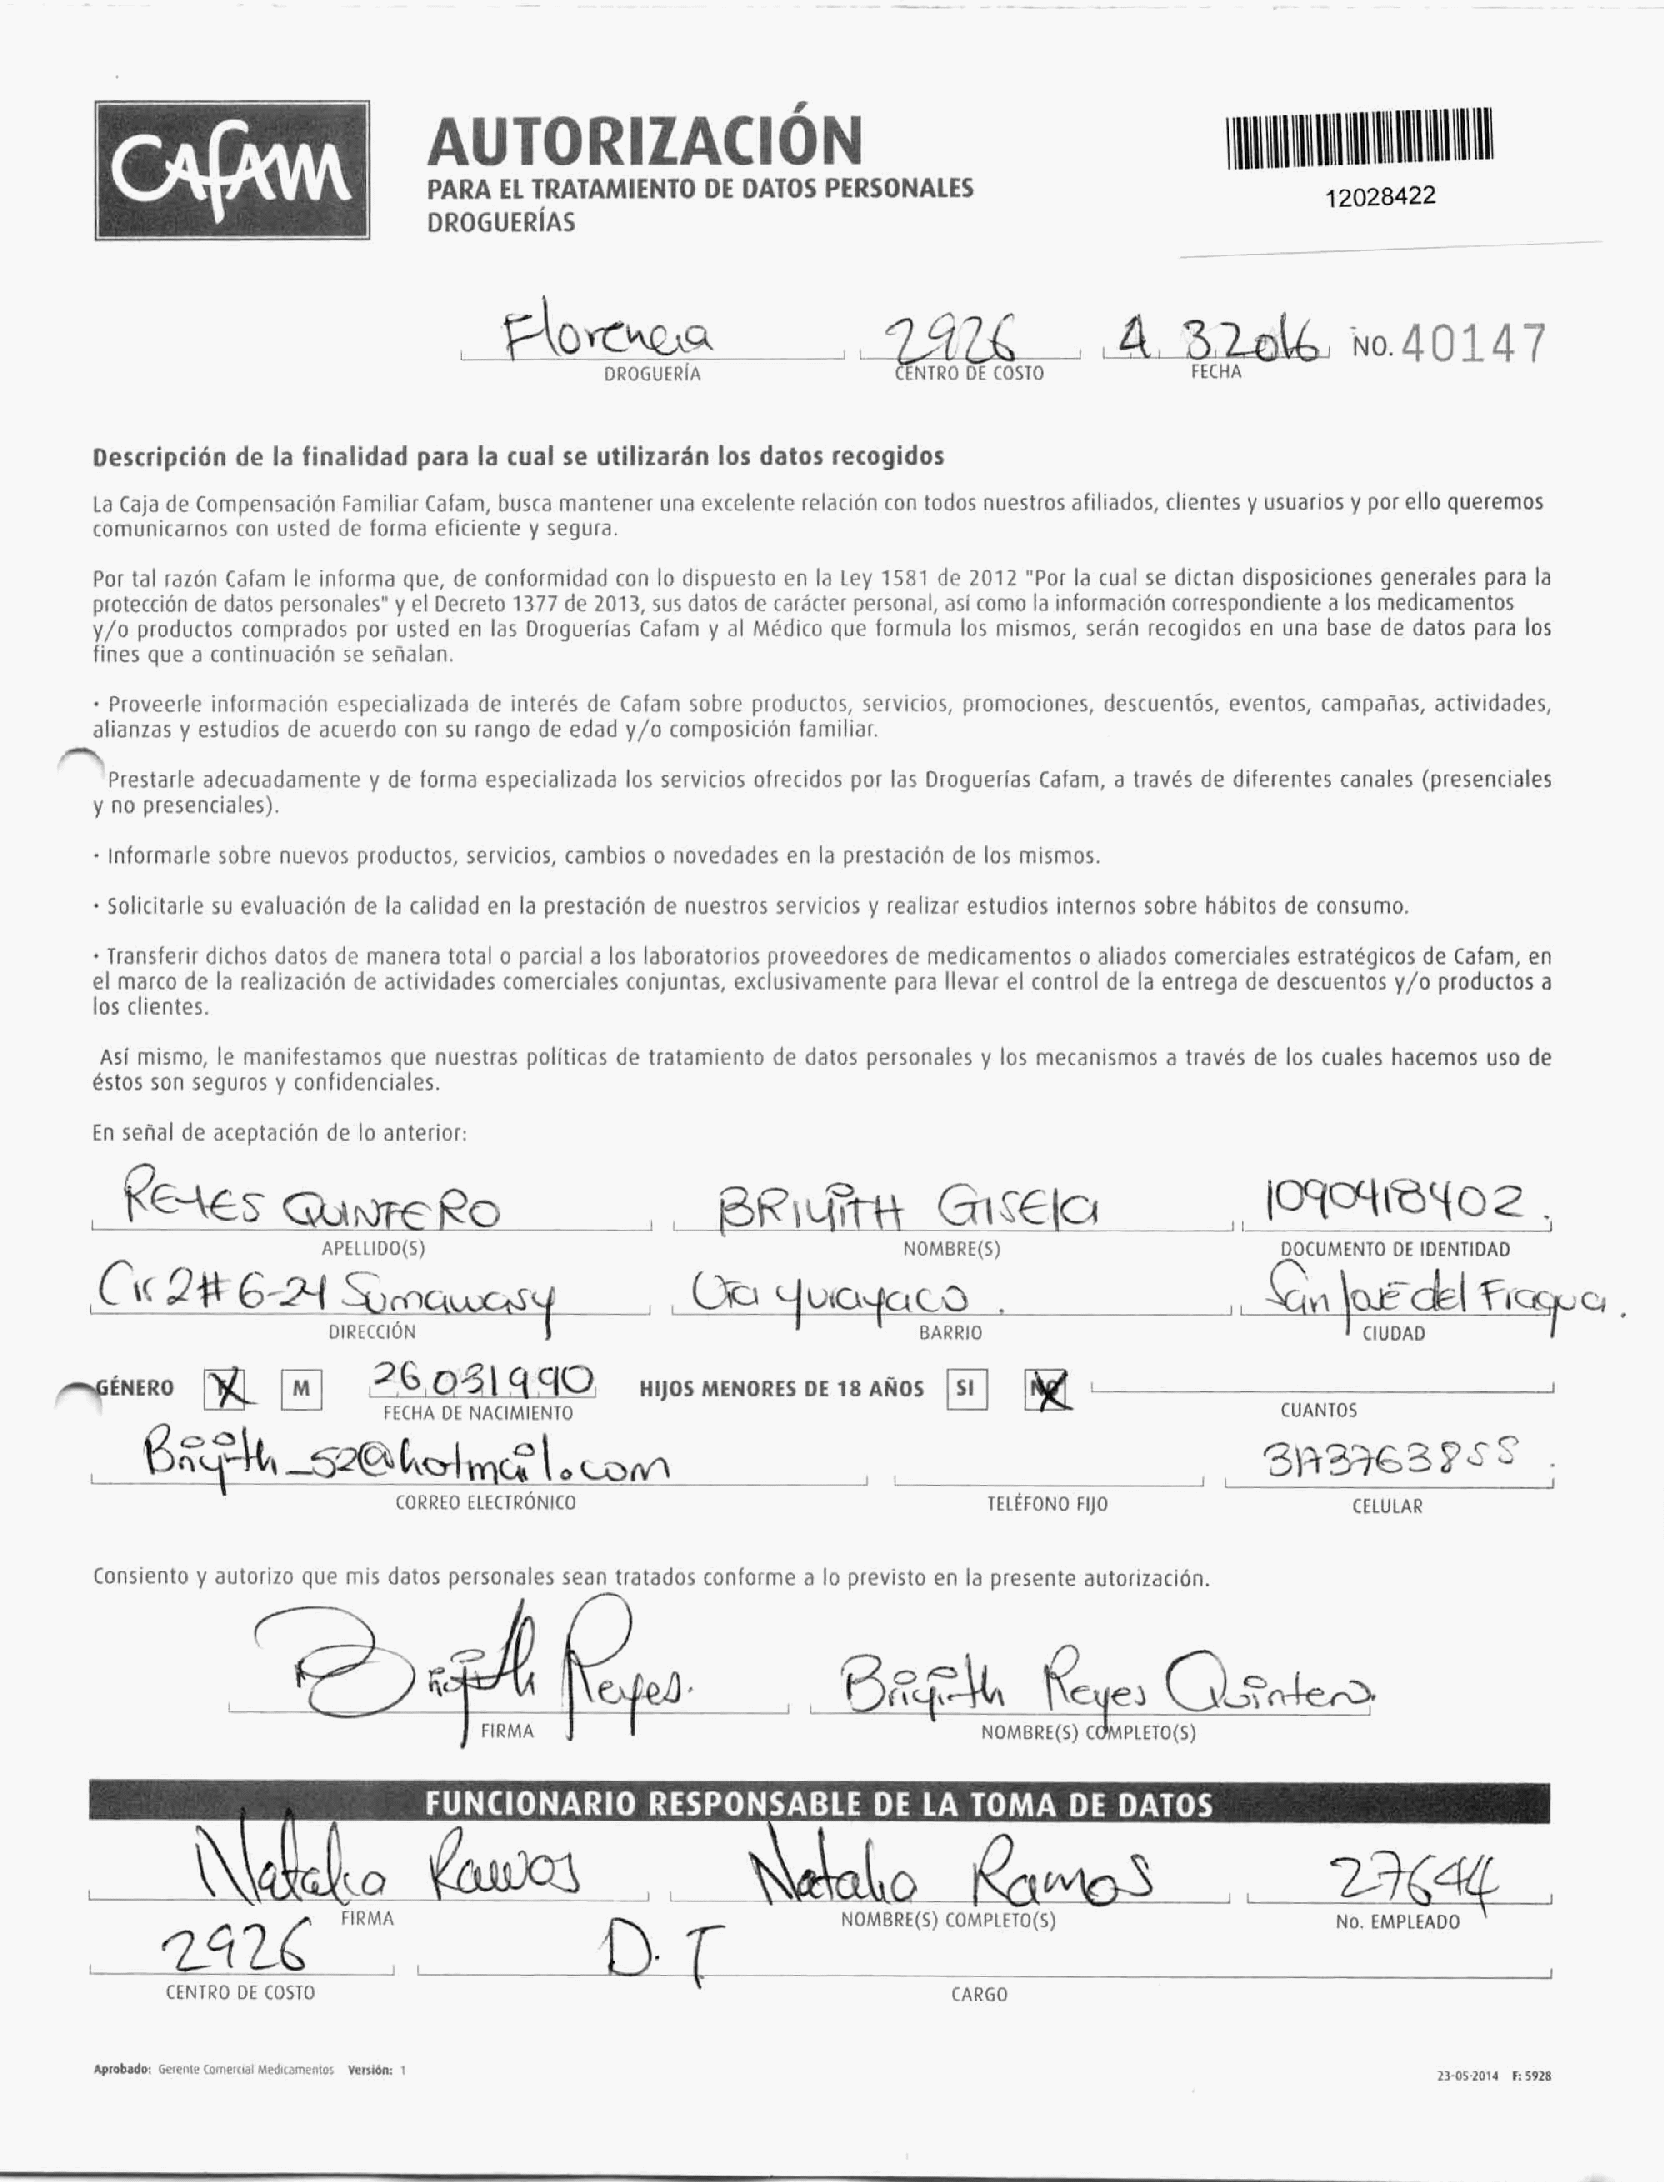 CAFAM
AUTORIZACIÓN
PARA EL TRATAMIENTO DE DATOS PERSONALES
DROGUERÍAS
12028422
Florencia 2926 4 3 2016 NO. 40147
DROGUERÍA CENTRO DE COSTO FECHA
Descripción de la finalidad para la cual se utilizarán los datos recogidos
La Caja de Compensación Familiar Cafam, busca mantener una excelente relación con todos nuestros afiliados, clientes y usuarios y por ello queremos
comunicarnos con usted de forma eficiente y segura.
Por tal razón Cafam le informa que, de conformidad con lo dispuesto en la Ley 1581 de 2012 "Por la cual se dictan disposiciones generales para la
protección de datos personales" y el Decreto 1377 de 2013, sus datos de carácter personal, así como la información correspondiente a los medicamentos
y/o productos comprados por usted en las Droguerías Cafam y al Médico que formula los mismos, serán recogidos en una base de datos para los
fines que a continuación se señalan.
· Proveerle información especializada de interés de Cafam sobre productos, servicios, promociones, descuentós, eventos, campañas, actividades,
alianzas y estudios de acuerdo con su rango de edad y/o composición familiar.
Prestarle adecuadamente y de forma especializada los servicios ofrecidos por las Droguerías Cafam, a través de diferentes canales (presenciales
y no presenciales).
· Informarle sobre nuevos productos, servicios, cambios o novedades en la prestación de los mismos.
· Solicitarle su evaluación de la calidad en la prestación de nuestros servicios y realizar estudios internos sobre hábitos de consumo.
· Transferir dichos datos de manera total o parcial a los laboratorios proveedores de medicamentos o aliados comerciales estratégicos de Cafam, en
el marco de la realización de actividades comerciales conjuntas, exclusivamente para llevar el control de la entrega de descuentos y/o productos a
los clientes.
Así mismo, le manifestamos que nuestras políticas de tratamiento de datos personales y los mecanismos a través de los cuales hacemos uso de
éstos son seguros y confidenciales.
En señal de aceptación de lo anterior:
REYES QUINTERO BRIYITH GISEla 1090418402.
APELLIDO(S) NOMBRE(S) DOCUMENTO DE IDENTIDAD
2#6-21 Sumawasy yurayaco. San José del Fragua.
DIRECCIÓN BARRIO CIUDAD
GÉNERO M 26031990 HIJOS MENORES DE 18 AÑOS SI NO
FECHA DE NACIMIENTO CUANTOS
Briyith_52@hotmail.com 3173763855.
CORREO ELECTRÓNICO TELÉFONO FIJO CELULAR
Consiento y autorizo que mis datos personales sean tratados conforme a lo previsto en la presente autorización.
Briyith Reyes. Briyith Reyes Quintero.
FIRMA NOMBRE(S) COMPLETO(S)
FUNCIONARIO RESPONSABLE DE LA TOMA DE DATOS
Natalia Ramos Natalia Ramos 27644
FIRMA NOMBRE(S) COMPLETO(S) No. EMPLEADO
2926 D.T
CENTRO DE COSTO CARGO
Aprobado: Gerente Comercial Medicamentos Versión: 1 23-05-2014 F: 5928